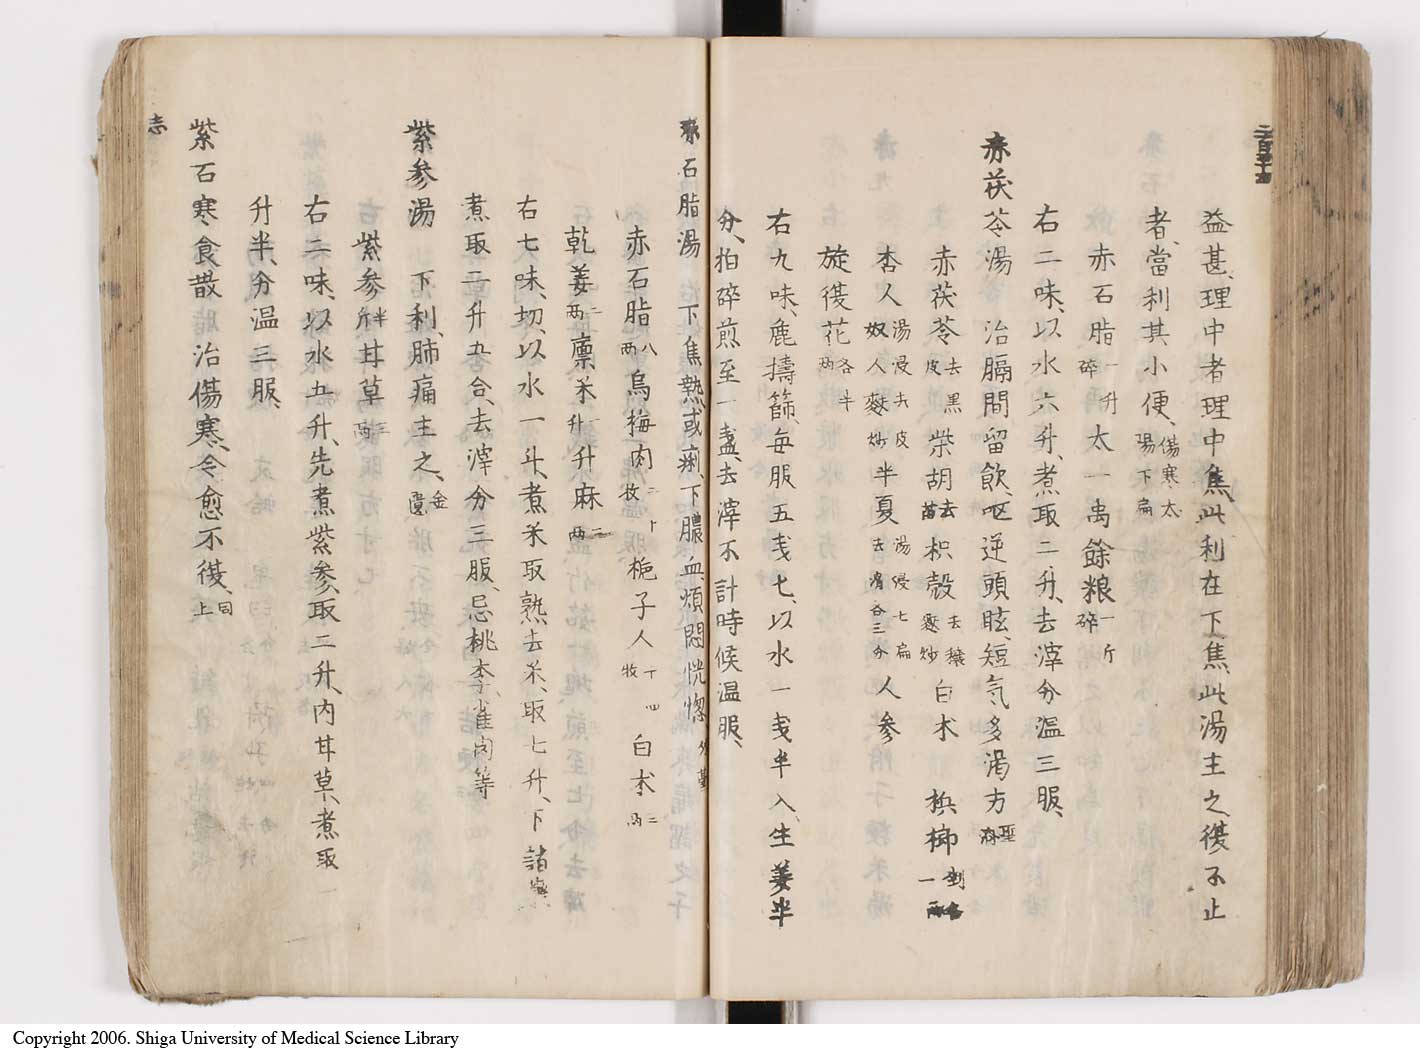 益甚、理中者理中焦、此利在下焦、此湯主之、復不止
者、當利其小便、傷寒太陽下扁
赤石脂一升碎 太一禹餘粮一斤碎
右二味、以水六升、煮取二升、去滓分温三服、
赤茯苓湯 治膈間留飲、呕逆頭眩、短気多渇方
赤茯苓去黒皮 柴胡去苗 枳殻去穰麩炒 白朩 檳榔
杏人湯浸去皮奴人麩炒 半夏湯侵七扁去滑各三分 人参
旋復花各半両
右九味、麁擣篩、毎服五戔七、以水一戔半入生姜半
分、拍碎煎至一盞、去滓不計時候温服、
赤石脂湯 下焦熱或痢、下膿血煩悶恍惚外䑓
赤石脂八両 烏梅肉二十枚 梔子人十四牧 白朮二両
乾姜二両 廪米一升 升麻二両
右七味、切、以水一斗、煮米取熟去米、取七升、下諸薬
煮取二升五合、去滓分三服、忌桃李雀肉等
紫参湯 下利、肺痛主之、金匱
紫参半斤 甘草三両
右二味、以水五升、先煮紫参、取二升、内甘草、煮取一
升半、分温三服、
紫石寒食散 治傷寒、令愈不復、同上
志